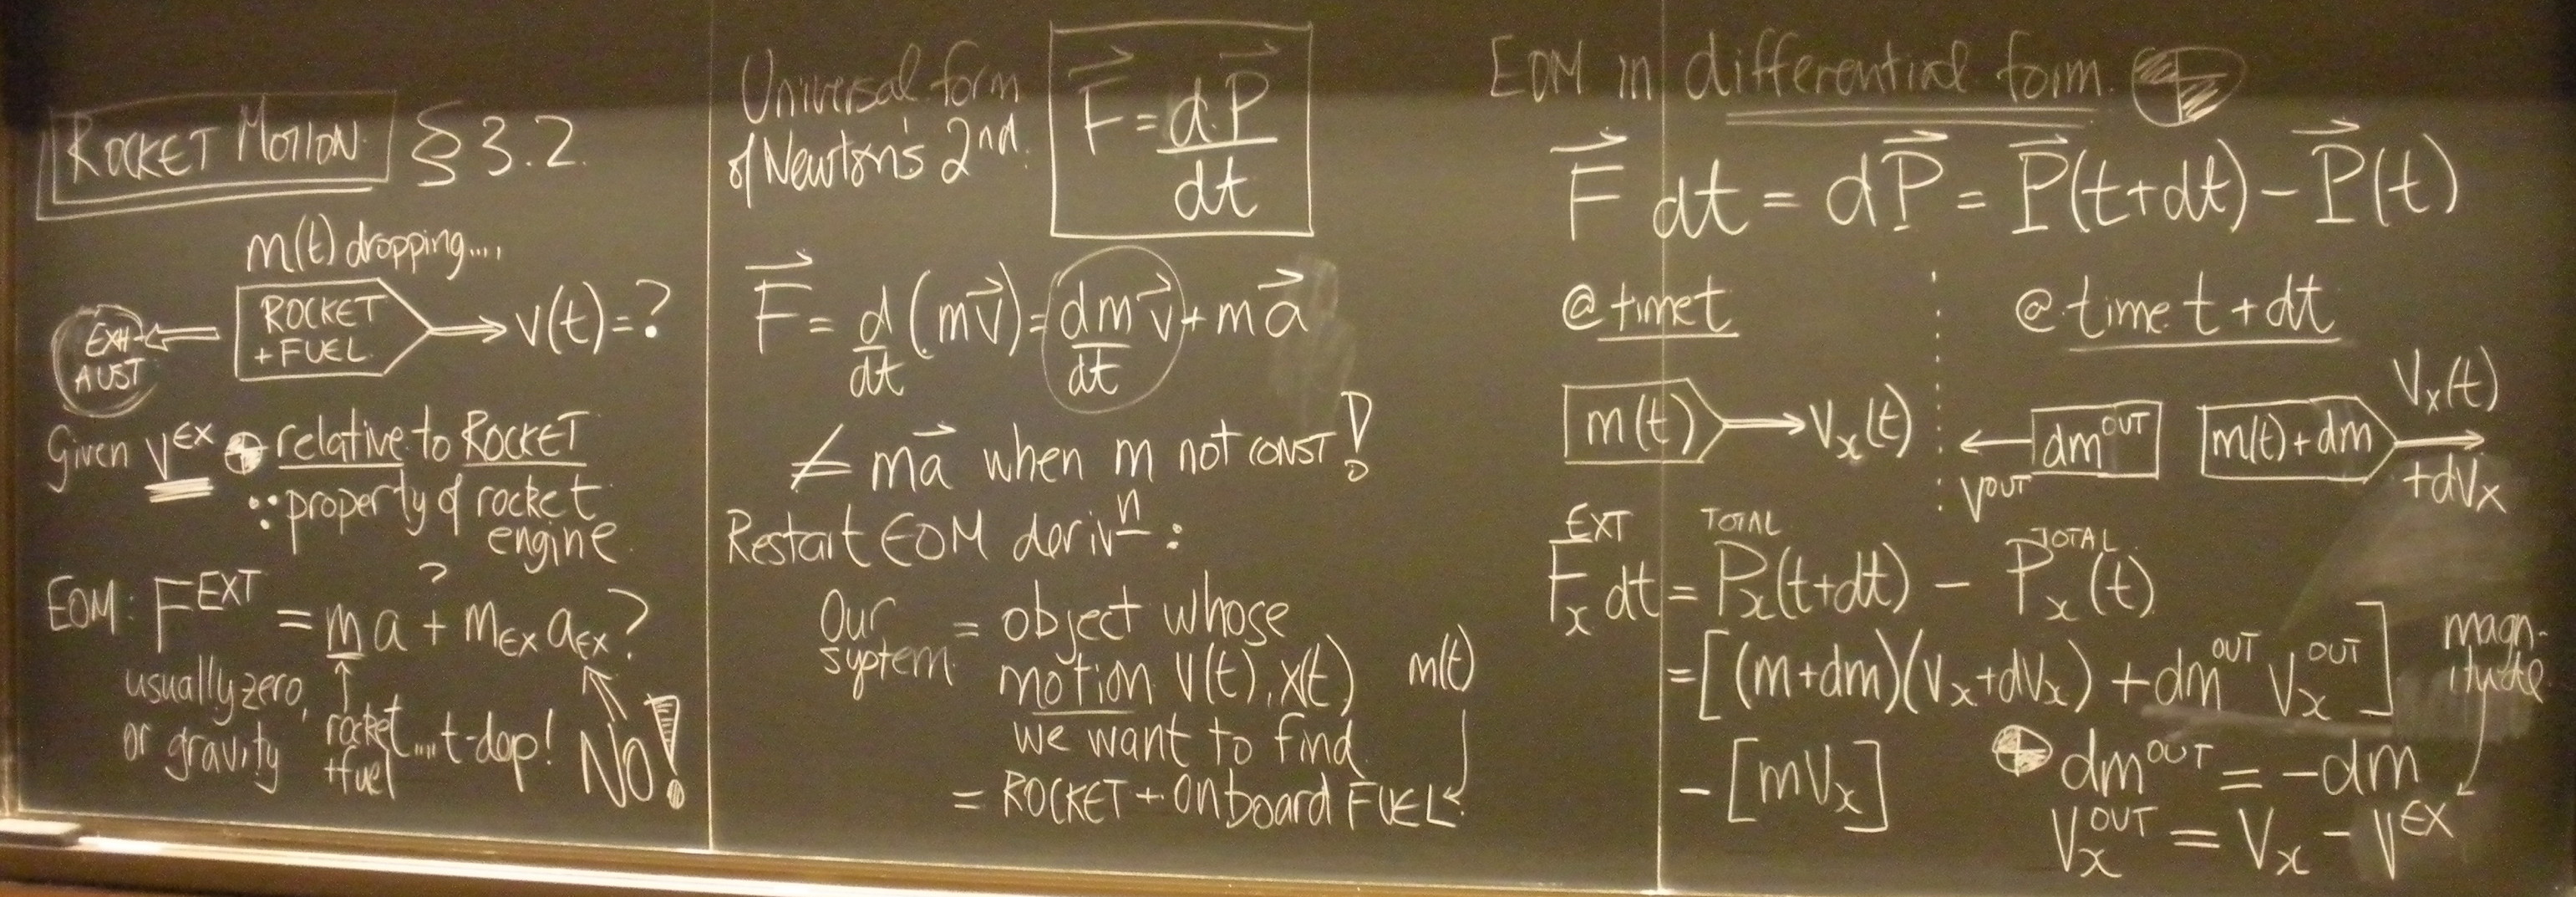 ROCKET MOTION § 3.2
m(t) dropping....
EXH AUST
ROCKET + FUEL
v(t) = ?
Given v^EX relative to ROCKET
∵ property of rocket
engine.
EOM: F^EXT = m a + m_EX a_EX ?
?
usually zero,
or gravity
rocket
+fuel
....t-dep!
NO!
Universal form
of Newton's 2nd.
F⃗ = dP⃗/dt
F⃗ = d/dt (m v⃗) = dm/dt v⃗ + m a⃗
≠ m a⃗ when m not CONST!
Restart EOM deriv^n :
Our system = object whose
motion v(t), x(t)
we want to find
= ROCKET + onboard FUEL
m(t)
EOM in differential form.
F⃗ dt = dP⃗ = P⃗(t+dt) - P⃗(t)
@ time t
@ time t + dt
m(t)
V_x(t)
V^OUT
dm^OUT
m(t)+dm
V_x(t)
+dV_x
F_x^EXT dt = P_x^TOTAL(t+dt) - P_x^TOTAL(t)
= [(m+dm)(V_x+dV_x) + dm^OUT V_x^OUT]
- [m V_x]
magn-
itude
dm^OUT = -dm
V_x^OUT = V_x - V^EX